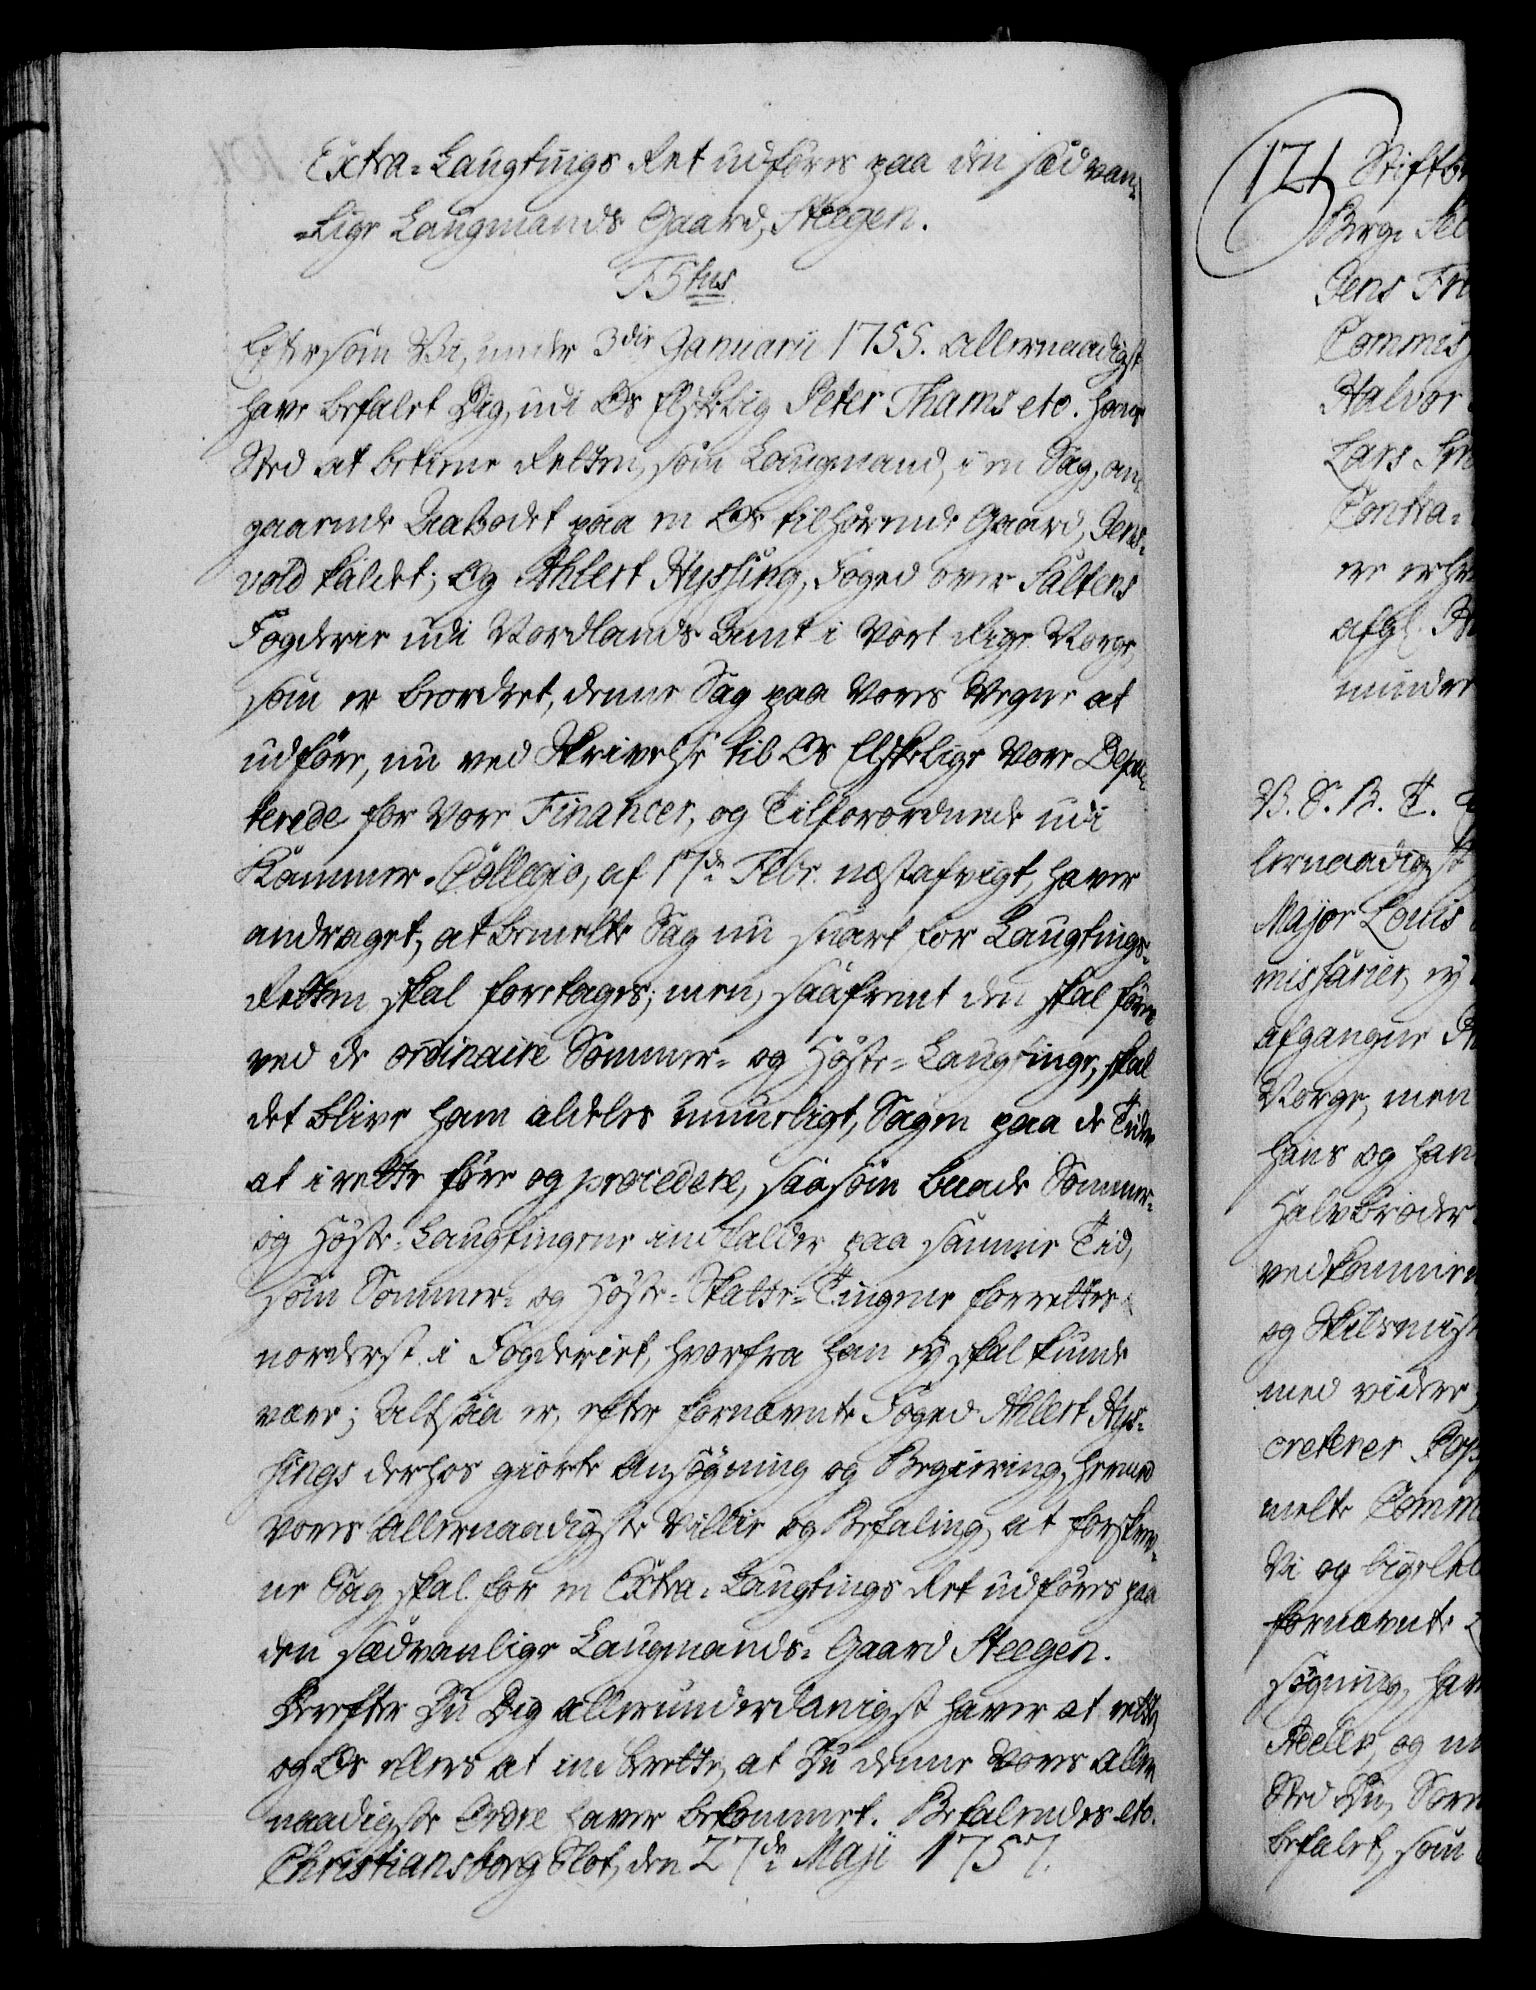 Extra-Laugtings Ret udføres paa den sædvan-
-lige Laugmands Gaard, Steegen.
F5tus
Eftersom Vi, under 3die Januarii 1755. allernaadigst
have befalet Dig, udi Os Elskelig Peter Thams etc. hans
Sted at betiene Retten, som Laugmand, i en Sag, an-
gaaende Aaboedet paa en Os tilhørende Gaard, Jens-
vold kaldet; Og Ahlert Hysing, Foged over Saltens
Fogderie udi Nordlands Amt i Vort Rige Norge,
som er beordret, denne Sag paa Vores Vegne at
udføre, nu ved Skrivelse til Os Elskelige Vore Depu-
terede for Vore Financer, og Tilforordnede udi
Kammer-Collegio, af 17de Febr. næstafvigt, haver
andraget, at bemelte Sag nu snart for Laugtings-
Retten skal foretages; men, saafremt den skal føres
ved de ordinaire Sommer- og Høste-Laugtinge, skal
det blive ham aldeles umueligt, Sagen paa de Tider
at i rette føre og procedere, saasom baade Sommer-
og Høste-Laugtingene indfalder paa samme Tid,
som Sommer- og Høste-Skatte-Tingene forrettes
nordest i Fogderiet, hvorfra han ey skal kunde
være; Altsaa er, efter fornævnte Foged Ahlert Hys-
sings derhos giorte Ansøgning og Begiering, hermed
Vores allernaadigste Villie og Befaling, at forskrev-
ne Sag skal for en Extra-Laugtings Ret udføres paa
den sædvanlige Laugmands-Gaard Steegen.
Derefter Du Dig allerunderdanigst haver at rette,
og Os ellers at indberette, at Du denne Vores aller-
naadigste Ordre haver bekommet. Befalendes etc.
Christiansborg Slot, den 27de Maji 1757.
121 Stiftb
Berg. Sel
Jens Fri
Commis
Halvor
Lars
Contra-
afgl.
V. S. B. T.
lernaadigst
Major Louis
missarier, ey
afgangne
Norge, men
hans og han
Halvbroder
vedkommen
og Skilsmis
med videre
creterer
melte Comm
Vi og ligele
fornævnte
søgning, hav
Stelle, og
Sted Du,
befalet, som